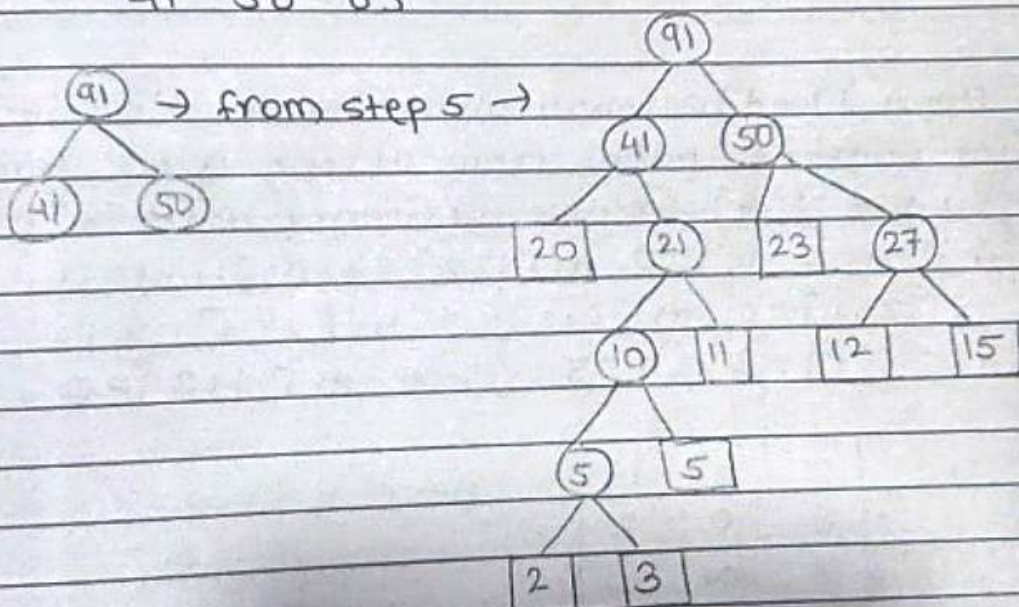 91
91 → from step 5 →
41 50
41 50
20 21 23 27
10 11 12 15
5 5
2 3